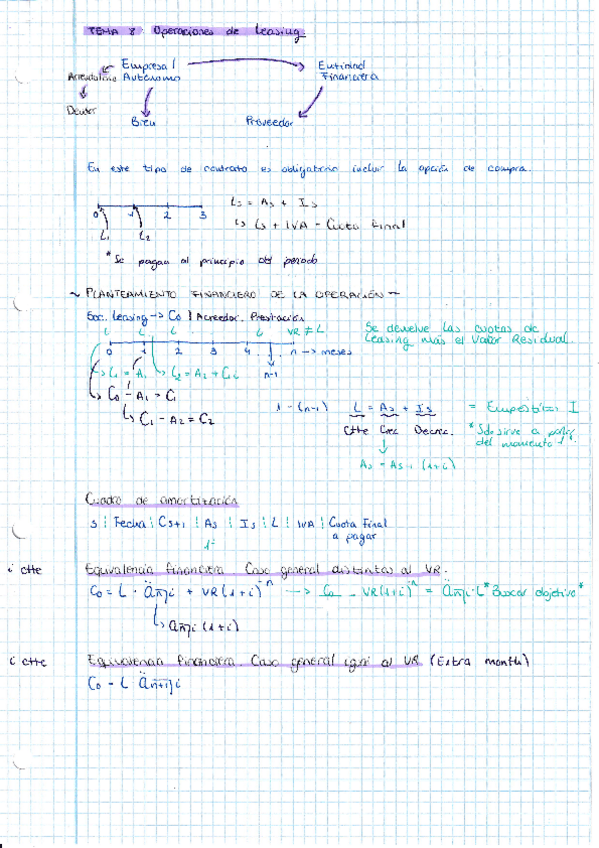 TEMA 8: Operaciones de Leasing.
Empresa / Entidad
Arrendatario Autónomo Financiera
Deudor
Bien Proveedor
En este tipo de contrato es obligatorio incluir la opción de compra.
Ls = As + Is
↳ Ls + IVA - Cuota Final
0 1 2 3
L1 L2
* Se pagan al principio del periodo
~ PLANTEAMIENTO FINANCIERO DE LA OPERACIÓN ~
Soc. Leasing → Co | Acreedor. Prestación
L L L L VR ≠ L
Se devuelve las cuotas de
Leasing más el Valor Residual.
0 1 2 3 4 n → meses
↳ L1 = A1 ↳ L2 = A2 + I2 n-1
↳ C0 - A1 = C1
↳ C1 - A2 = C2
1 - (n-1) L = As + Is
Ctte Crec Decrec.
* Sólo sirve a partir
del momento 1.
As = As-1 (1+i)
Cuadro de amortización
s | Fecha | Cs+1 | As | Is | L | IVA | Cuota Final
a pagar
i ctte Equivalencia financiera. Caso general distintas al VR.
Co = L · än¬i + VR(1+i)^-n → Co - VR(1+i)^-n = än¬i · L *Buscar objetivo*
↳ an¬i (1+i)
i ctte Equivalencia financiera. Caso general igual al VR (Extra month)
Co = L än+1¬i